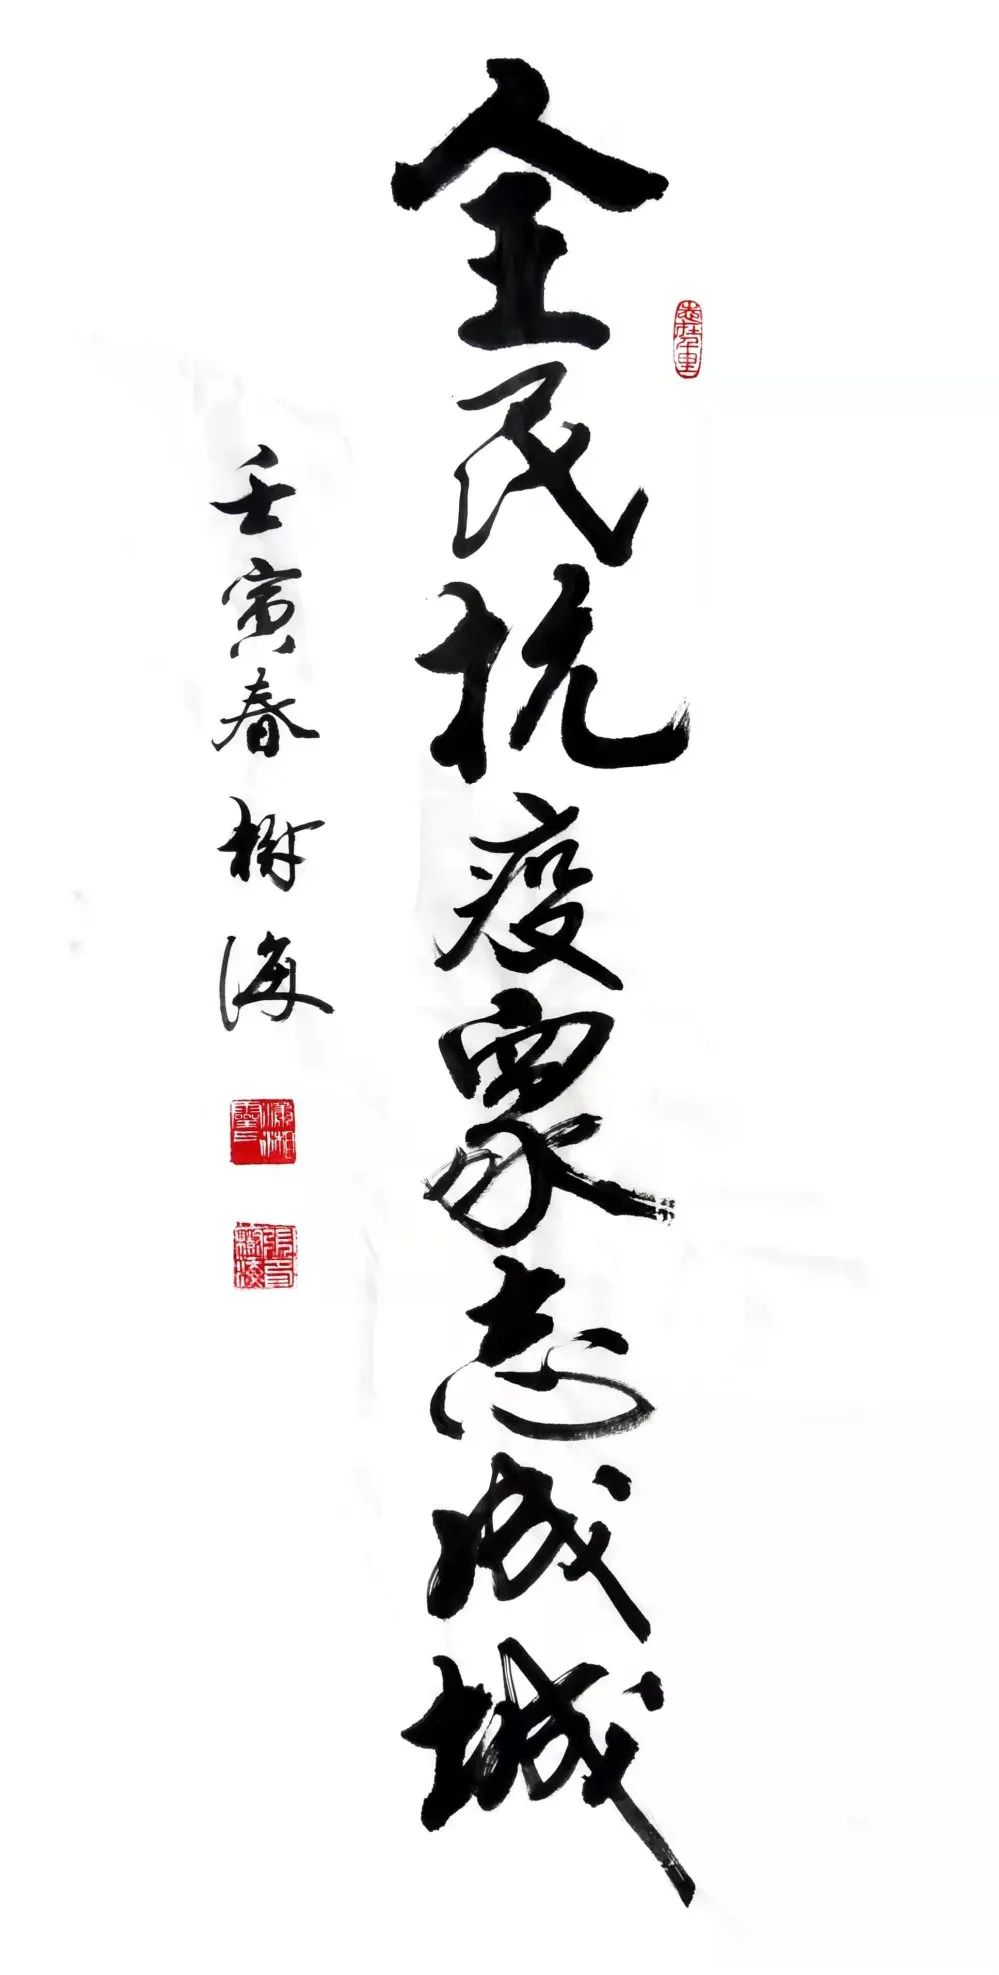 全民抗疫眾志成城
壬寅春樹海